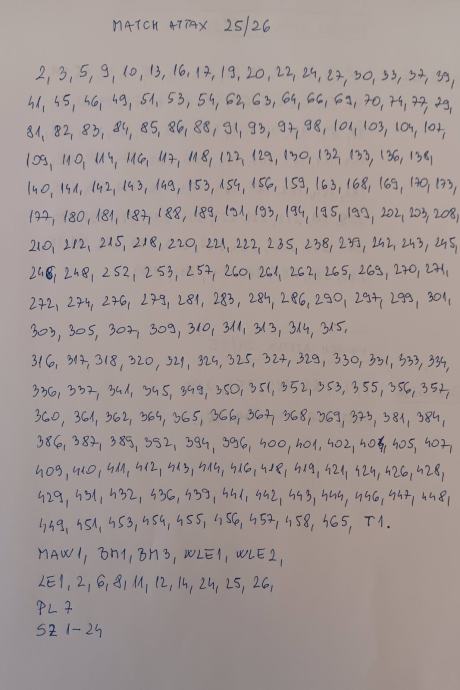 MATCH ATTAX 25/26
2, 3, 5, 9, 10, 13, 16, 17, 19, 20, 22, 24, 27, 30, 33, 37, 39,
41, 45, 46, 49, 51, 53, 54, 62, 63, 64, 66, 69, 70, 74, 77, 79,
81, 82, 83, 84, 85, 86, 88, 91, 93, 97, 98, 101, 103, 104, 107,
109, 110, 114, 116, 117, 118, 122, 129, 130, 132, 133, 136, 138,
140, 141, 142, 143, 149, 153, 154, 156, 159, 163, 168, 169, 170, 173,
177, 180, 181, 187, 188, 189, 191, 193, 194, 195, 199, 202, 203, 208,
210, 212, 215, 218, 220, 221, 222, 235, 238, 239, 242, 243, 245,
246, 248, 252, 253, 257, 260, 261, 262, 265, 269, 270, 271,
272, 274, 276, 279, 281, 283, 284, 286, 290, 297, 299, 301,
303, 305, 307, 309, 310, 311, 313, 314, 315.
316, 317, 318, 320, 321, 324, 325, 327, 329, 330, 331, 333, 334,
336, 337, 341, 345, 349, 350, 351, 352, 353, 355, 356, 357,
360, 361, 362, 364, 365, 366, 367, 368, 369, 373, 381, 384,
386, 387, 389, 392, 394, 396, 400, 401, 402, 404, 405, 407,
409, 410, 411, 412, 413, 414, 416, 418, 419, 421, 424, 426, 428,
429, 431, 432, 436, 439, 441, 442, 443, 444, 446, 447, 448,
449, 451, 453, 454, 455, 456, 457, 458, 465, T1.
MAW1, BM1, BM3, WLE1, WLE2,
LE1, 2, 6, 8, 11, 12, 14, 24, 25, 26,
PL 7
SZ 1-24